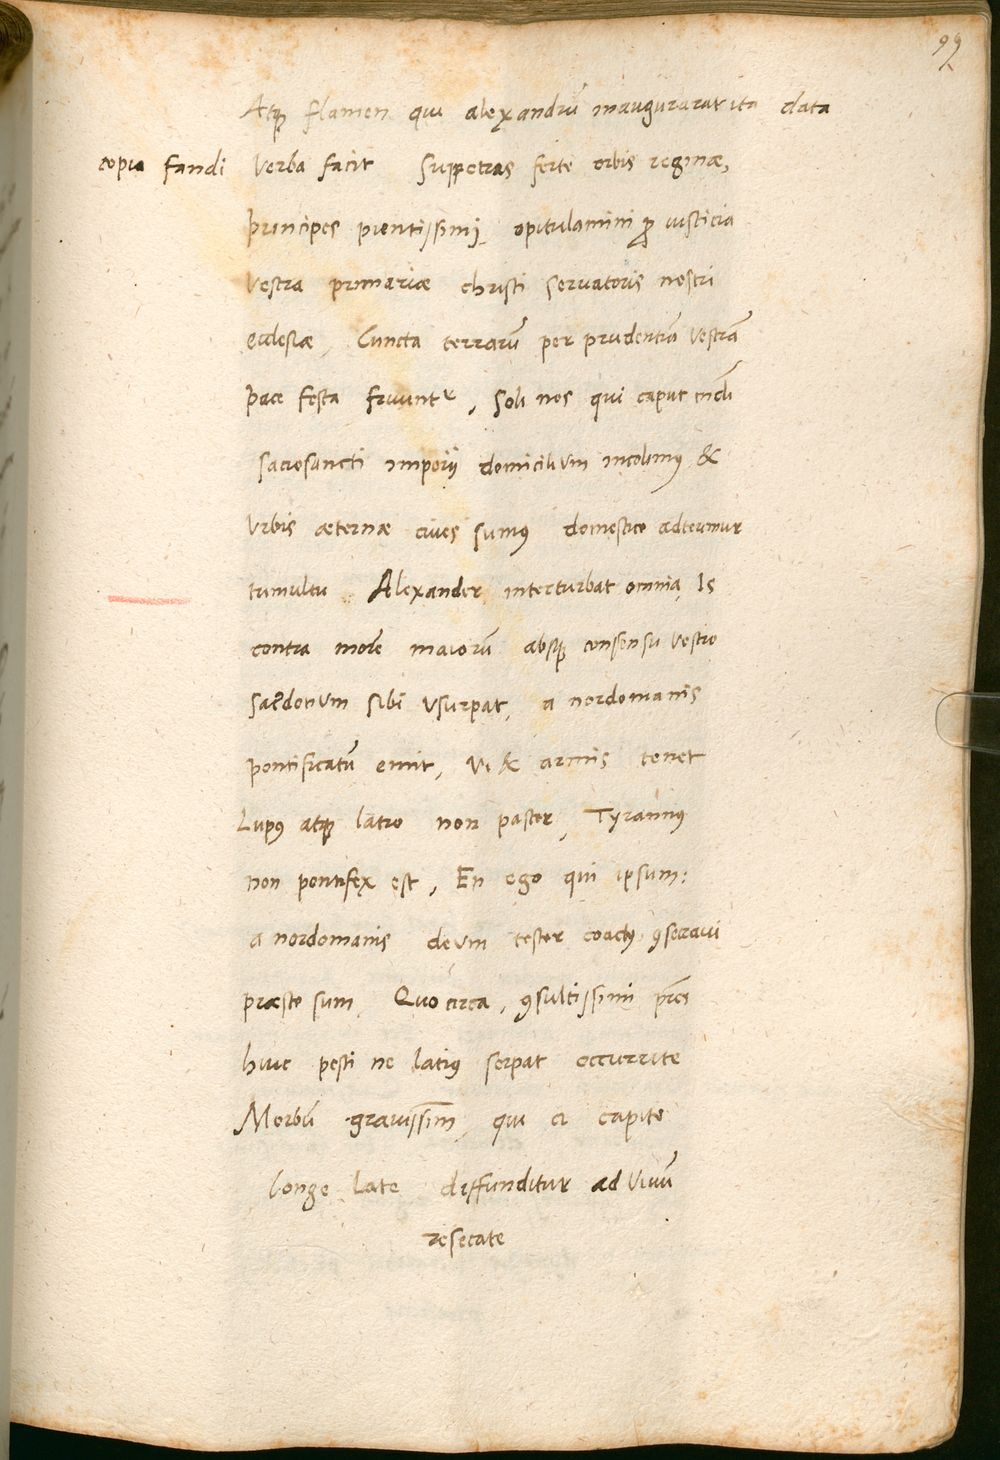 99
Atqꝫ flamen qui alexandrū inaugurarat ita data
copia fandi Verba facit Suppetias ferte orbis reginæ,
principes pientissimj, opitulamini ꝓ iusticia
Vestra primariæ christi servatoris nostri
ecclesiæ, Cuncta terrarū per prudentiā Vestrā
pace festa fruuntʳ, Soli nos qui caput
sacrosancti imperij domicilium incolimꝰ &
Vrbis æternæ ciues sumꝰ domestico adterimur
tumultu. Alexander interturbat omnia, Is
contra morē maiorū absqꝫ consensu Vestro
sac̄dotium sibi Vsurpat, a nordomanis
pontificatū emit, Vi & armis tenet
Lupꝰ atqꝫ latro non pastor, Tyrannꝰ
non pontifex est, En ego qui ipsum:
a nordomanis deum testor coactꝰ ꝯsecraui
præsto sum, Quocirca, ꝯsultissimi p̄res
huic pesti ne latiꝰ serpat occurrite
Morbū grauissim̄, qui a capite
longe late diffunditur ad Viuū
resecate